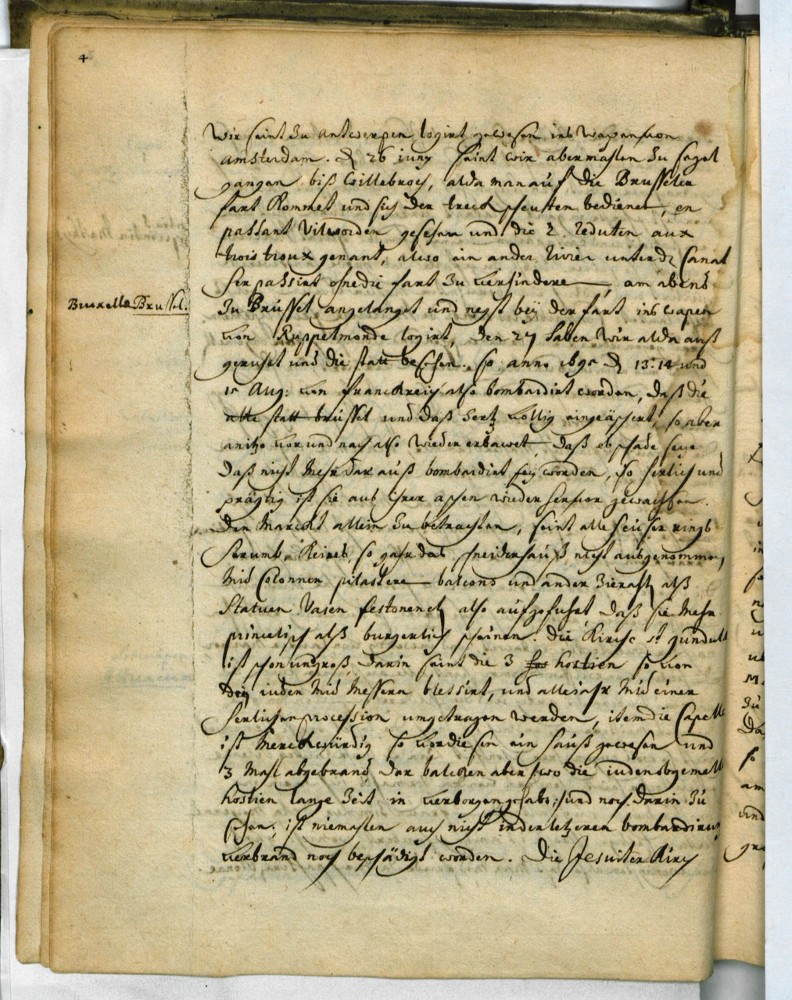 4
Wir seint zu Antwerpen logirt gewesen ins Wapen von
Amsterdam. D 26 iuny seint wir abermahlen zu segel
gangen biß Willebroeck, alda man auf die Brusseler
fart kommet und sich der treck scheuten bedienet, en
passant Vilworden gesehen und die 2 reduten aux
trois troux genant, alwo ein ander rivier unter dem Canal
her passirt ohne die fart zu verhinderen, am abend
Bruxelle Brussel.
zu Brüssel angelangt und negst bey der fart ins wapen
von Ruppelmonde logirt, den 27 haben wir alda auß
geruhet und die statt besehen, so anno 1695 D 13. 14 und
15 Aug: von franckreich also bombardirt worden, daß die
alte statt brüssel und daß hertz vollig eingeäschert, so aber
anitzo vor und nach also wieder erbawet, daß es schade seye
daß nicht mehr dar auß bombardirt sey worden, so herlich und
prächtig ist sie aus ihrer aschen wieder hervor gewachsen.
Den Marckt allein zu betrachten, seint alle heuser rings
herumb, so gahr das schneiderhauß nicht ausgenommen,
mit Colonnen pilastern balcons und ander zierath alß
Statuen Vasen festonen etc also aufgefuhrt daß sie mehr
princelich alß burgerlich scheinen. die Kirche St gundula
ist schon und groß, darin seint die 3 hostien so von
den iuden mit messern blessirt, und alle iahr mit einer
herlichen procession umgetragen werden, item die Capelle
ist merckwürdig so vor diesen ein hauß gewesen und
3 mahl abgebrand, der balcken aber, wo die iuden obgemelte
hostien lange zeit in verborgen gehabt, und noch darin zu
sehen, ist niemahlen auch nicht in der letzeren bombardirung
verbrand noch beschädigt worden. Die Jesuiter Kirch